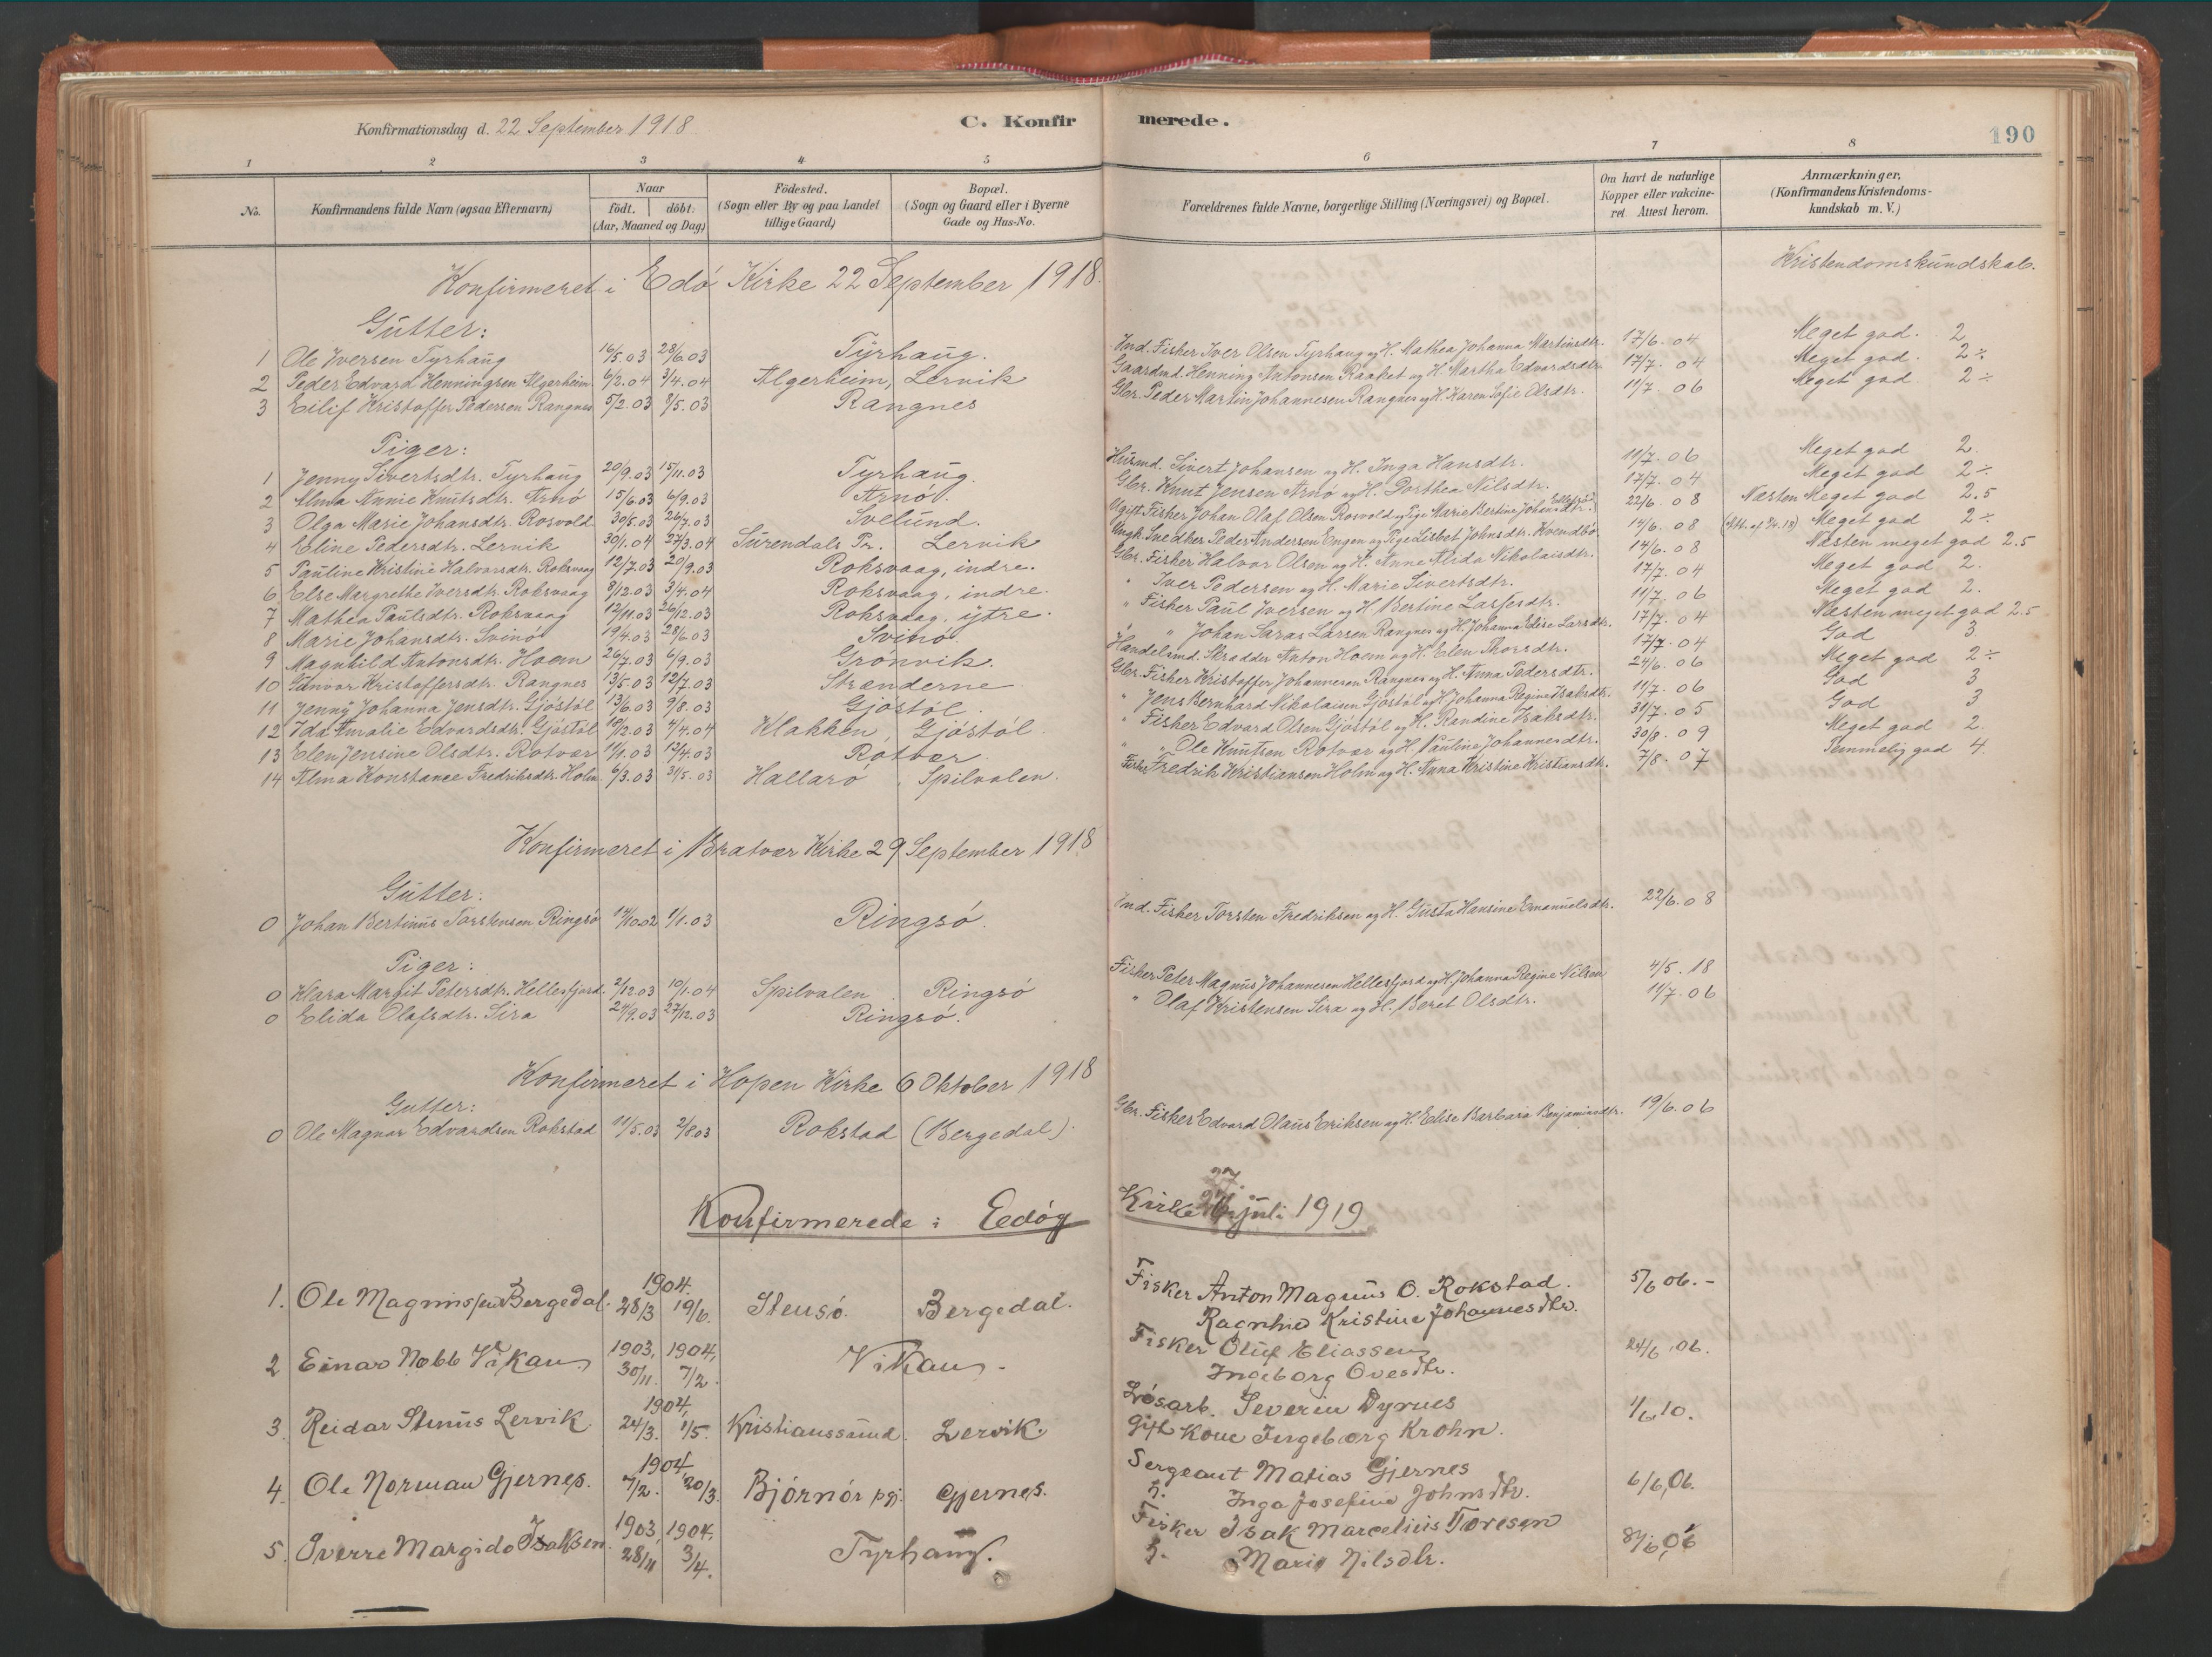 Konfirmationsdag d. 22 September 1918
C. Konfirmerede.
190
1 2 3 4 5 6 7 8
No.
Konfirmandens fulde Navn (ogsaa Efternavn)
Naar
födt. döbt.
(Aar, Maaned og Dag)
Födested.
(Sogn eller By og paa Landet
tillige Gaard)
Bopæl.
(Sogn og Gaard eller i Byerne
Gade og Hus-No.
Forældrenes fulde Navne, borgerlige Stilling (Næringsvei) og Bopæl.
Om havt de naturlige
Kopper eller vakcine-
ret Attest herom.
Anmærkninger.
(Konfirmandens Kristendoms-
kundskab m. V.)
Konfirmeret i Edö Kirke 22 September 1918.
Kristendomskundskab.
Gutter:
1 Ole Iversen Tyrhaug 16/5.03 28/6.03 Tyrhaug. Ind. Fisker Iver Olsen Tyrhaug og H. Mathea Johanna Martinsdtr. 17/6. 04 Meget god. 2
2 Peder Edvard Henningsen Algerheim 6/2.04 3/4.04 Algerheim, Lervik Gaardmd. Henning Antonsen Raaket og H. Martha Edvardsdtr. 17/7. 04 Meget god. 2÷
3 Eilif Kristoffer Pedersen Rangnes 5/2.03 /5.03 Rangnes Gbr. Peder Martin Johannesen Rangnes og H. Karen Sofie Olsdtr. 11/7. 06 Meget god 2÷
Piger:
1 Jenny Sivertsdtr. Tyrhaug 20/9.03 15/11.03 Tyrhaug. Husmd. Sivert Johansen og H. Inga Hansdtr. 11/7. 06 Meget god 2.
2 Alma Annie Knutsdtr. Arnö 15/6.03 6/9.03 Arnö. Gbr. Knut Jensen Arnö og H. Dorthea Nilsdtr. 17/7. 04 Meget god 2÷
3 Olga Marie Johansdtr. Rosvold 30/5.03 26/7.03 Svelund. Ugift Fisker Johan Olaf Olsen Rosvold og Pige Marie Bertine Johansdtr. 22/6. 08 Næsten Meget god 2.5
4 Eline Pedersdtr. Lervik 30/1.04 27/3.04 Surendals Pr. Lervik Ungk. Snedker Peder Andersen Engen og Pige Lisbet Johnsdtr. Kvendbö. 14/6. 08 Meget god 2÷
5 Pauline Kristine Halvorsdtr. Roksvaag 12/7.03 20/9.03 Roksvaag, indre. Gbr. Fisker Halvor Olsen og H. Anne Alida Nikolaisdtr. 14/6. 08 Næsten meget god 2.5
6 Else Margrethe Iversdtr. Roksvaag 9/12.03 3/4.04 Roksvaag, indre. " Iver Pedersen og H. Marie Sivertsdtr. 17/7. 04 Meget god 2.
7 Mathea Paulsdtr. Roksvaag 12/11.03 26/12.03 Roksvaag, ytre. " Fisker Paul Iversen og H. Bertine Larsesdtr. 11/7. 06 Meget god 2.
8 Marie Johansdtr. Svinö 19/4.03 28/6.03 Svinö. " " Johan Saras Larsen Rangnes og H. Johanna Elise Larsdtr. 17/7. 04 Næsten meget god 2.5
9 Magnhild Antonsdtr. Hoem 26/7.03 6/9.03 Grönvik. Handelsmd. Skrædder Anton Hoem og H. Elen Thorsdtr. 17/7. 04 God 3
10 Gunvor Kristoffersdtr. Rangnes 13/5.03 12/7.03 Stranderne Gbr. Fisker Kristoffer Johannesen Rangnes og H. Anna Pedersdtr. 24/6. 06 Meget god 2÷
11 Jenny Johanna Jensdtr. Gjöstöl 13/6.03 9/8.03 Gjöstöl. " Jens Bernhard Nikolaisen Gjöstöl og H. Johanna Regine Isaksdtr. 11/7. 06 God 3
12 Ida Amalie Edvardsdtr. Gjöstöl 10/12.03 4/4.04 Klakken, Gjöstöl. " Fisker Edvard Olsen Gjöstöl og H. Randine Isaksdtr. 31/7. 05 God 3
13 Elen Jensine Olsdtr. Rotvær 11/1.03 12/4.03 Rotvær. " " Ole Knutsen Rotvær og H. Pauline Johannesdtr. 30/8. 09 Meget god 2.
14 Alma Konstance Fredriksdtr. Holm 6/3.03 31/5.03 Hallarö, Spilvalen. Fisker Fredrik Kristiansen Holm og H. Anna Kristine Kristiansdtr. 7/8. 07 Temmelig god 4.
Konfirmeret i Bratvær Kirke 29 September 1918
Gutter:
0 Johan Bertinus Torstensen Ringsö 14/10.02 1/1.03 Ringsö. Ind. Fisker Torsten Fredriksen og H. Gusta Hansine Emanuelsdtr. 22/6. 08
Piger:
0 Klara Margit Petersdtr. Hellesfjord. 2/12.03 10/1.04 Spilvalen Ringsö Fisker Peter Magnus Johannesen Hellesfjord og H. Johanna Regine Nilsen 4/5. 18
0 Elida Olafsdtr. Sira 24/9.03 27/12.03 Ringsö. " Olaf Kristensen Sira og H. Beret Olsdtr. 11/7. 06
Konfirmeret i Hopen Kirke 6 Oktober 1918
Gutter:
0 Ole Magnar Edvardsen Rokstad 11/5.03 2/8.03 Rokstad (Bergedal). Gbr. Fisker Edvard Olaus Eriksen og H. Elise Barbara Benjaminsdtr. 19/6. 06
Konfirmerede i Eedöy Kirke 27. juli 1919
1. Ole Magnussen Bergedal. 1904. 28/3 19/6. Stensö. Bergedal. Fisker Anton Magnus O. Rokstad. 5/6 06.-
Ragnhild Kristine Johannesdtr.
2 Einar Nobb Vikan 1903, 30/11. 1904, 7/2. Vikan. Fisker Oluf Eliassen 24/6, 06.
Ingeborg Ovesdtr.
3. Reidar Stenus Lervik. 1904, 24/3. 1/5. Kristianssund. Lervik. Lösarb. Severin Dyrnes 1/6, 10.
Gift Kone Ingeborg Krohn.
4. Ole Norman Gjernes. 1904, 7/2. 20/3. Björnör pgj. Gjernes. Sergeant Matias Gjernes 6/6, 06.
H. Inga Josefine Johnsdtr.
5. Sverre Margido Isaksen. 1903, 28/11 1904. 3/4. Tyrhaug. Fisker Isak Marcelius Toresen /6, 06
H. Marie Nilsdtr.